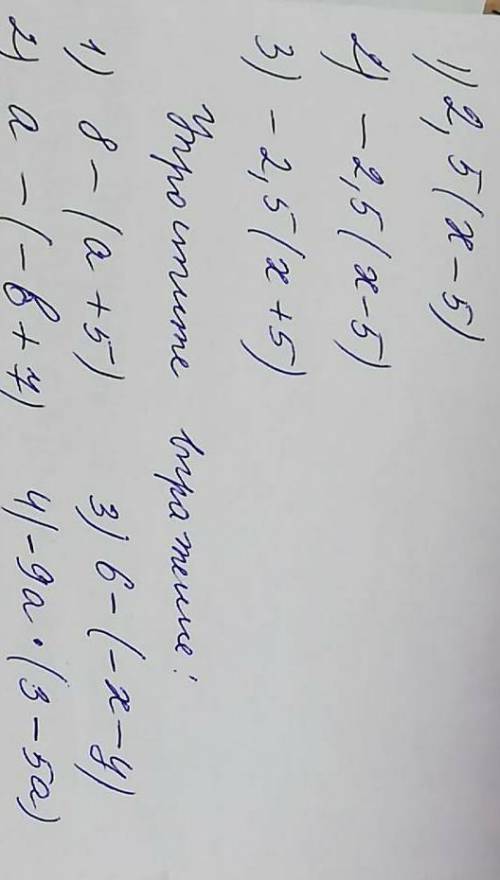 1) 2,5(x-5)
2) -2,5(x-5)
3) -2,5(x+5)
Упростите выражение:
1) 8-(a+5) 3) 6-(-x-y)
2) a-(-в+7) 4) -9a·(3-5a)